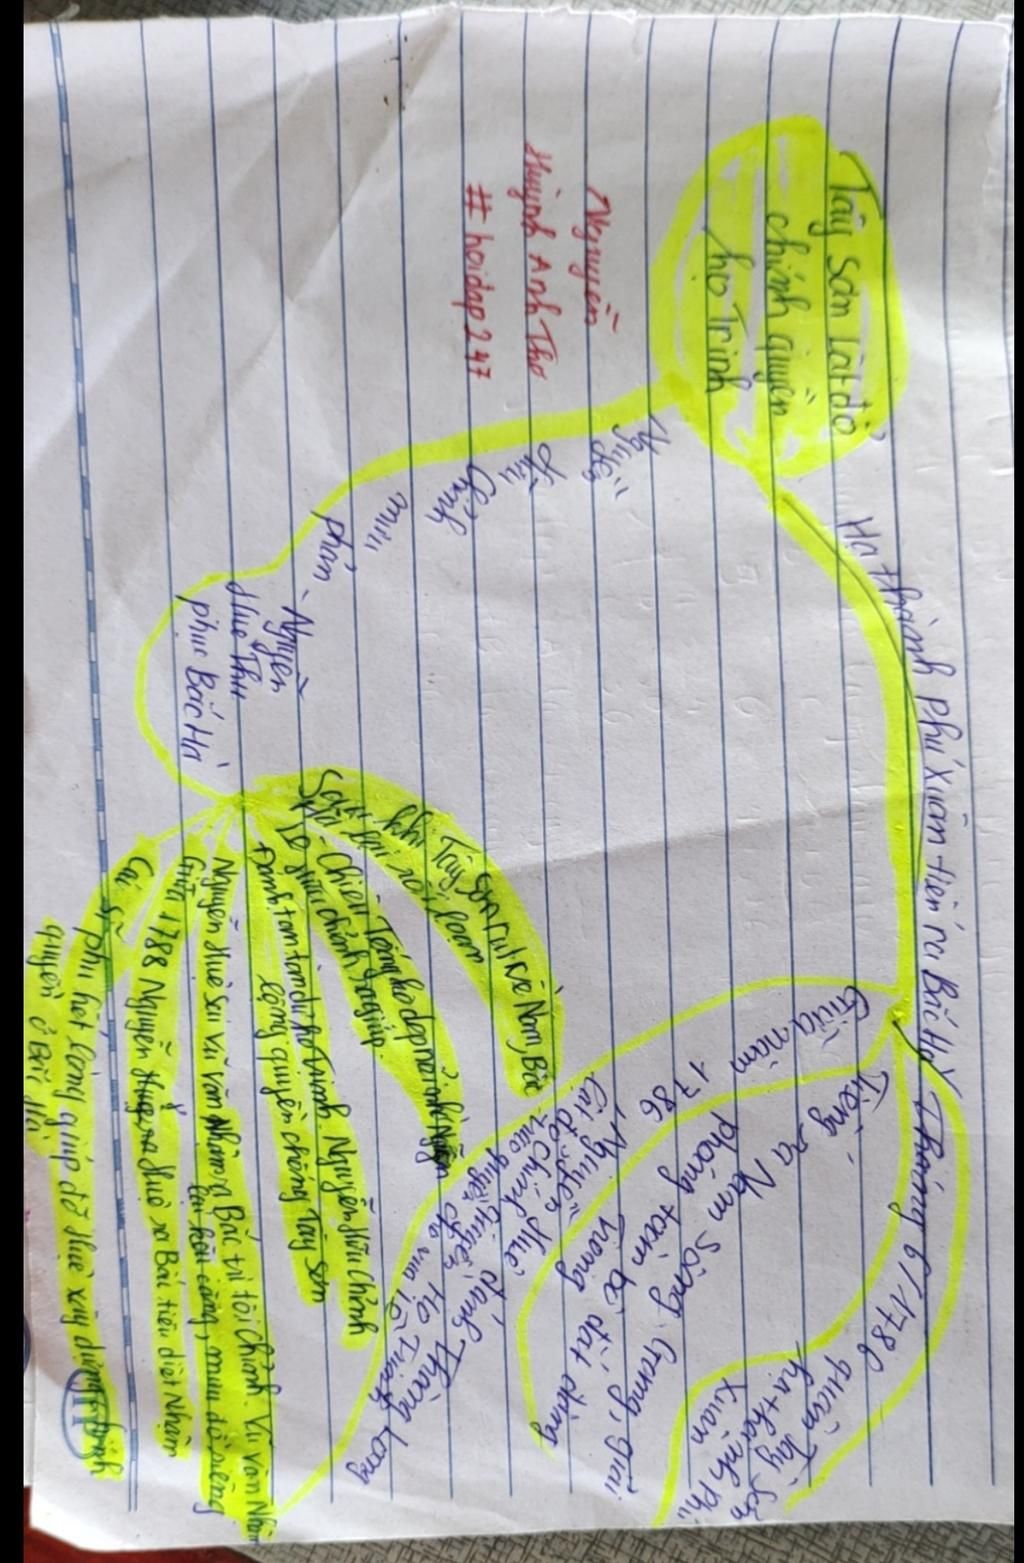 Tây Sơn lật đổ
chính quyền
họ Trịnh
Nguyễn
Huỳnh Anh Thơ
# hoidap247
Hạ thành phú Xuân tiến ra Bắc Hà
Tháng 6/1786
quân Tây Sơn
hạ thành Phú
Xuân
Tiến ra Nam Sông Giang, giải
phóng toàn bộ đất đàng
Trong
Giữa năm
1786 Nguyễn Huệ đánh Thăng Long
Nguyễn
Hữu
Chỉnh
mưu
phản - Nguyễn
Huệ Thu
phục Bắc Hà
Khi Tây Sơn rút về Nam, Bắc
lại rối loạn
- Chiêu Thống
Nguyễn Hữu Chỉnh
đánh tan tàn dư họ Trịnh Nguyễn Hữu Chỉnh
lộng quyền chống Tây Sơn
Nguyễn Huệ sai Vũ Văn Nhậm ra Bắc trị tội Chỉnh. Vũ Văn Nhậm
mưu đồ riêng
Giữa 1788 Nguyễn Huệ ra Bắc tiêu diệt Nhậm
Các sĩ phu hết lòng giúp đỡ Huệ xây dựng chính
quyền ở Bắc Hà